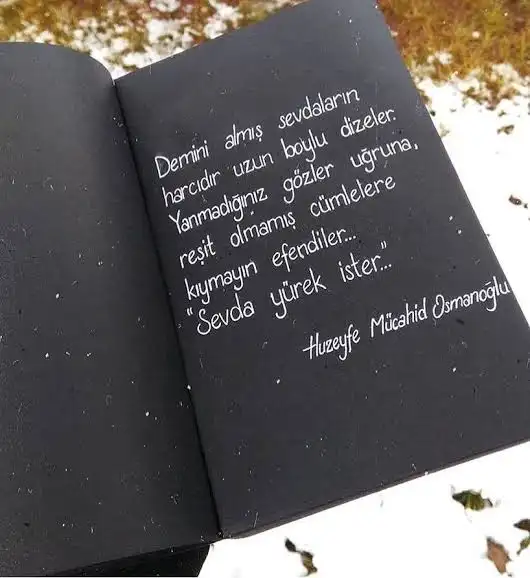 Demini almış sevdaların
harcıdır uzun boylu dizeler.
Yanmadığınız gözler uğruna,
reşit olmamış cümlelere
kıymayın efendiler...
"Sevda yürek ister..."
Huzeyfe Mücahid Osmanoğlu